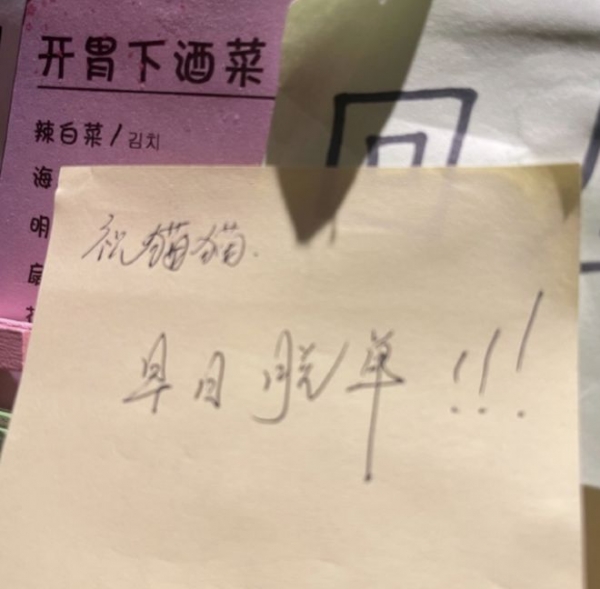 开胃下酒菜
辣白菜/김치
海
明
回
祝猫猫.
早日脱单!!!